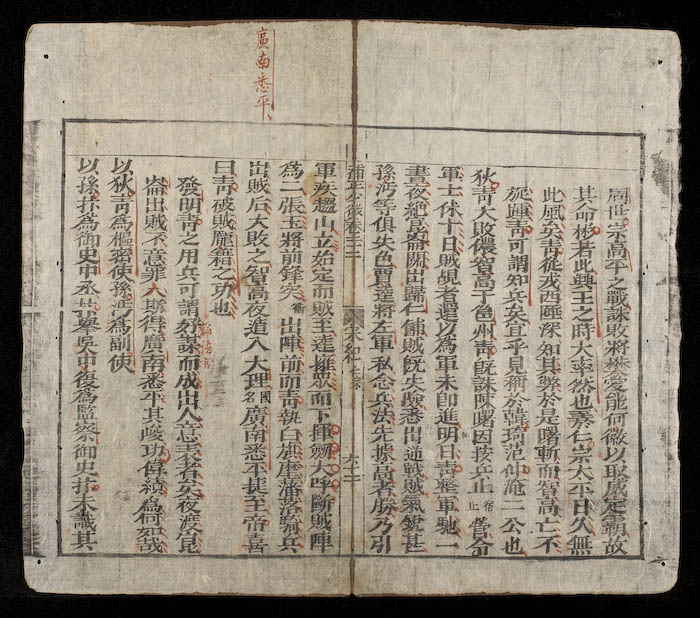 廣南悉平
周世宗高平之戰誅敗將樊愛能何徽以取威定霸故
其命將若此興王之時大率然也蓋仁宗太平日久無
此風矣青從戎西陲深知其弊於是曙斬而智高亡不
旋踵青可謂知兵矣宜乎見稱於韓琦范仲淹二公也
狄青大敗儂智高于邕州青既誅陳曙因按兵止營令
軍士休十日賊覘者還以為軍未即進明日青整軍馳一
晝夜絕崑崙關出歸仁鋪賊既失險悉出逆戰賊氣銳甚
孫沔等俱失色賈逵將左軍私念兵法先據高者勝乃引
卷二十二 宋紀 仁宗
軍疾趨山立始定而賊至逵擁眾而下揮劍大呼斷賊陣
為二張玉將前鋒突出陣前而青執白旗麾蕃落騎兵
出賊后大敗之智高夜遁入大理國名廣南悉平捷至帝喜
曰青破賊龐籍之功也
發明青之用兵可謂好謀而成出人意表者矣夜渡崑
崙出賊不意罪人斯得廣南悉平其峻功偉績為何如哉
以狄青為樞密使孫沔為副使
以孫抃為御史中丞 抃舉吳中復為監察御史抃未識其